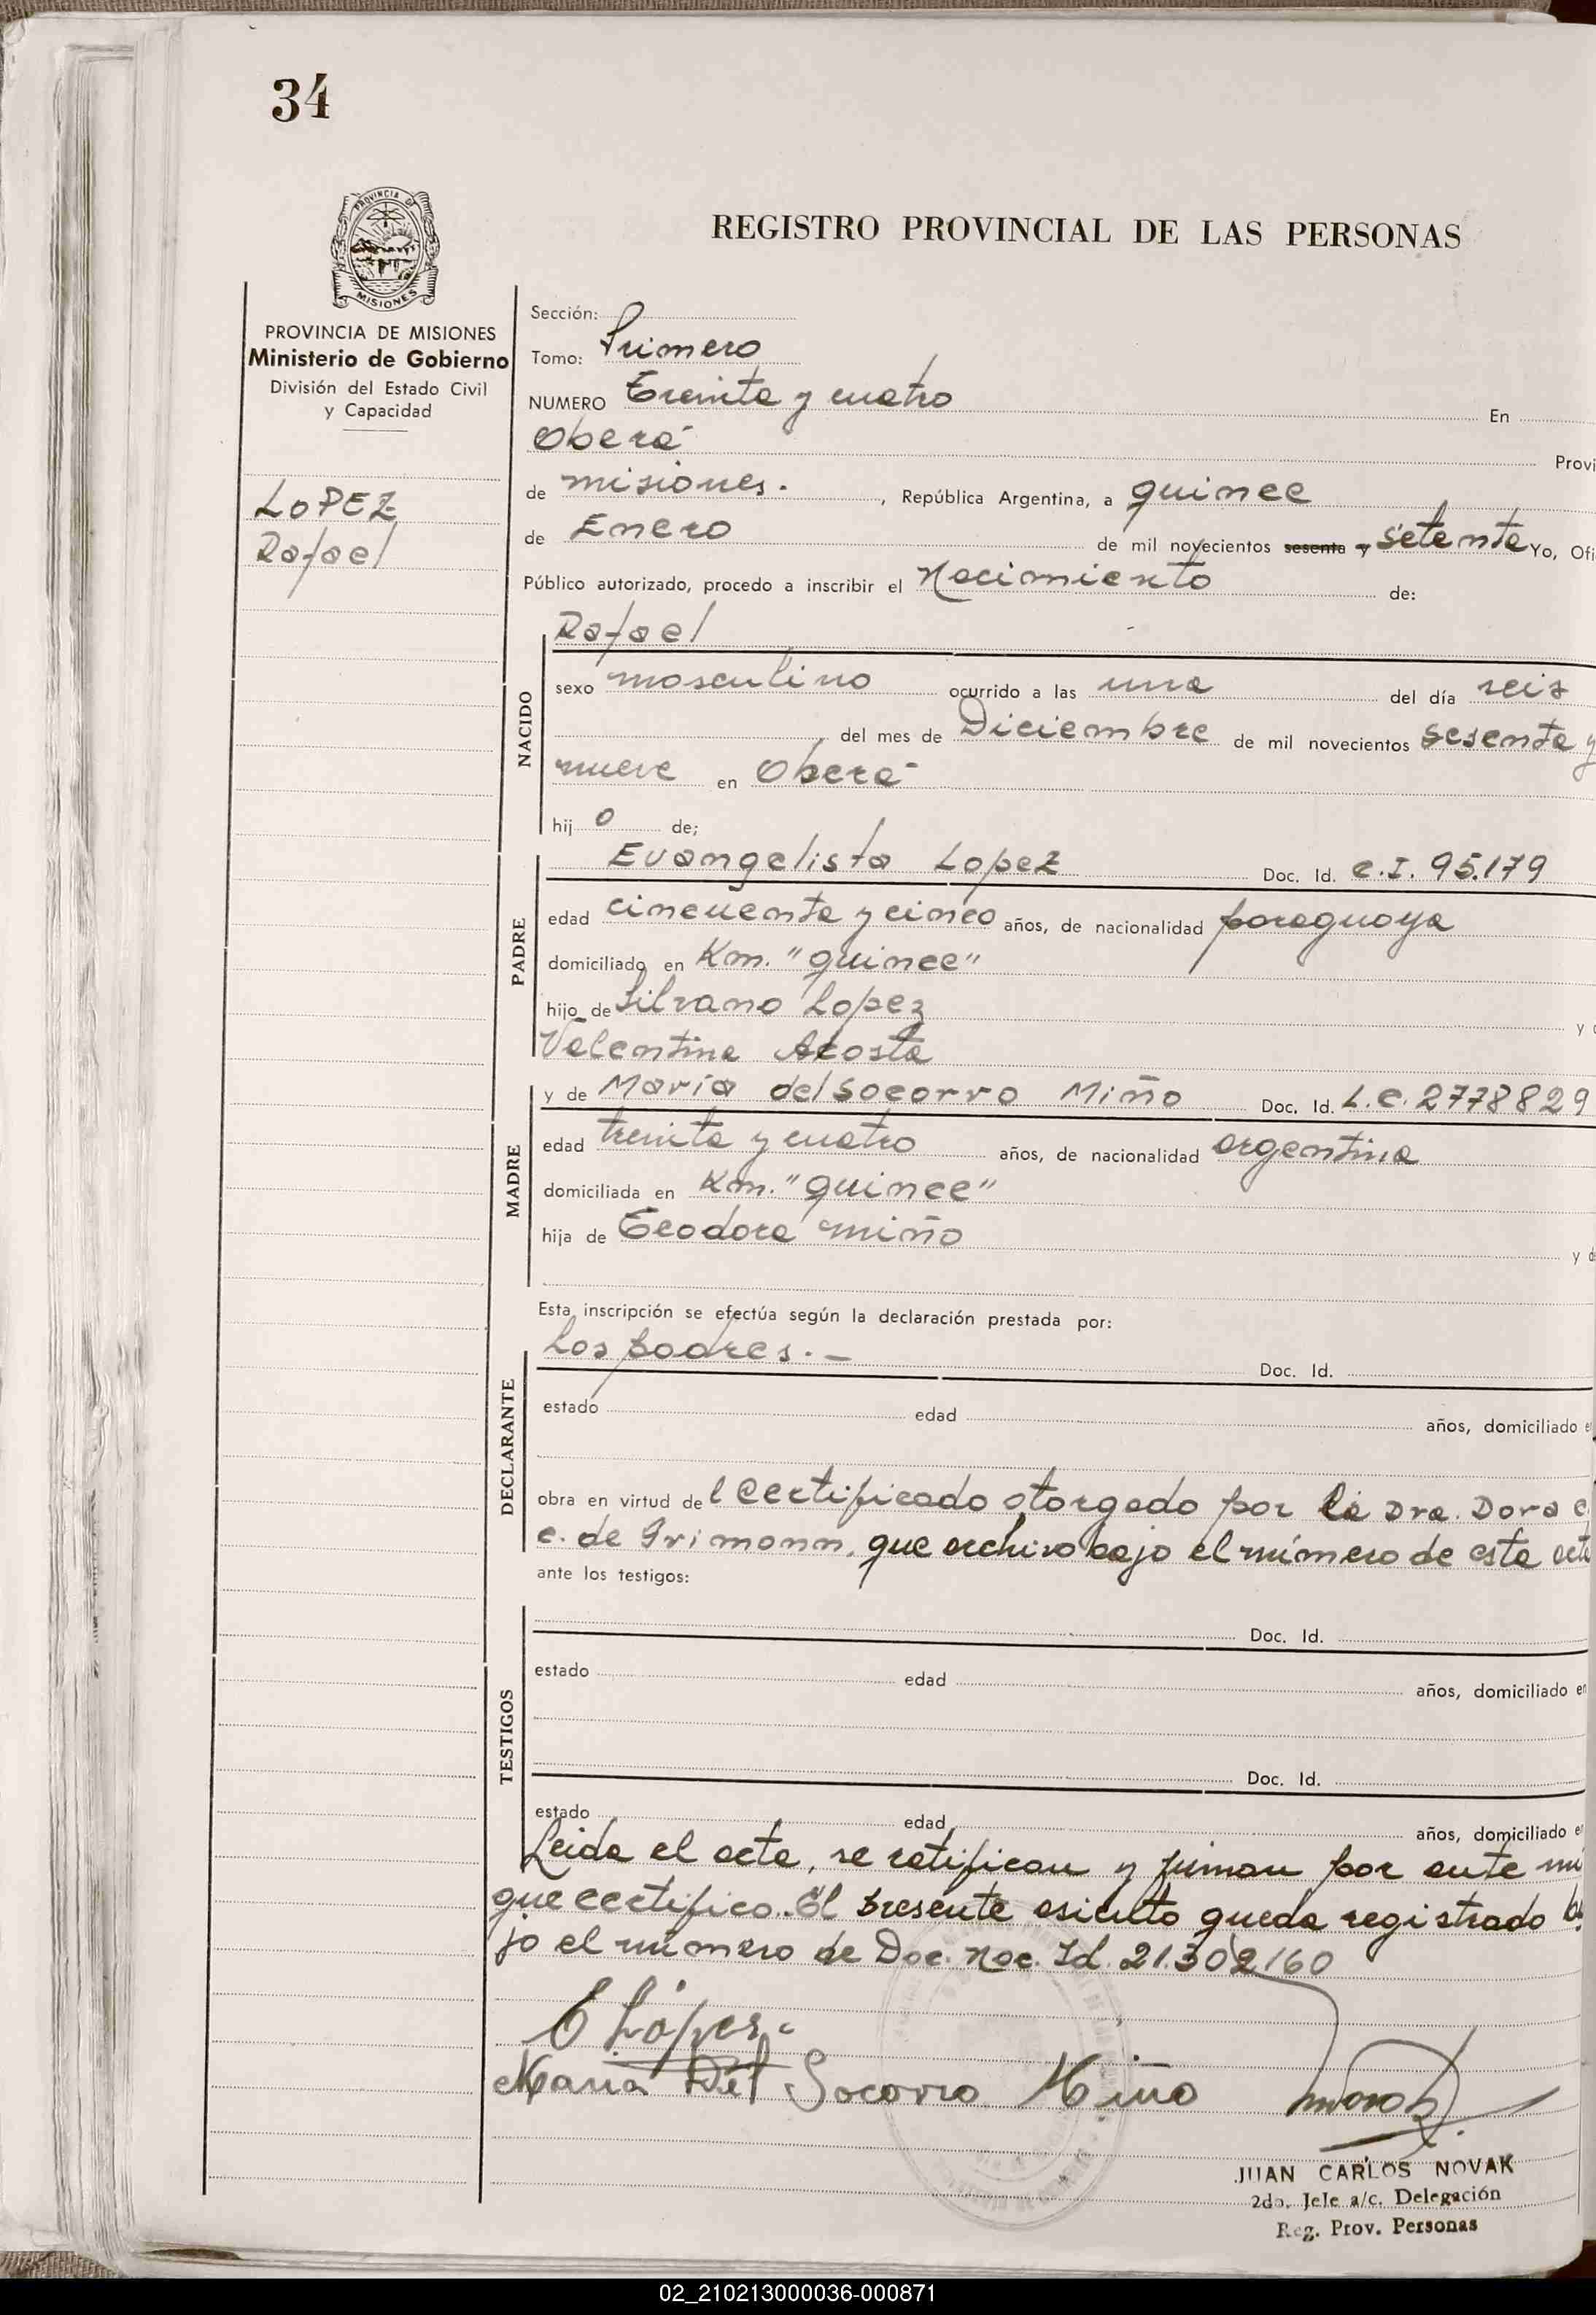 34
PROVINCIA DE
MISIONES
REGISTRO PROVINCIAL DE LAS PERSONAS
PROVINCIA DE MISIONES
Ministerio de Gobierno
División del Estado Civil
y Capacidad
LOPEZ
Rafael
Sección:
Tomo: Primero
NUMERO Treinta y cuatro En
Oberá Provi
de misiones. , República Argentina, a quince
de Enero de mil novecientos sesenta y setenta Yo, Ofi
Público autorizado, procedo a inscribir el Nacimiento de:
NACIDO
Rafael
sexo masculino ocurrido a las una del día seis
del mes de Diciembre de mil novecientos sesenta y
nueve en Oberá
hij o de;
PADRE
Evangelista Lopez Doc. Id. C.I. 95.179
edad cincuenta y cinco años, de nacionalidad paraguaya
domiciliado en Km. "quince"
hijo de Silvano Lopez y d
Valentina Acosta
MADRE
y de María del Socorro Miño Doc. Id. L.C. 2778829
edad treinta y cuatro años, de nacionalidad argentina
domiciliada en Km. "quince"
hija de Teodora miño y d
Esta inscripción se efectúa según la declaración prestada por:
DECLARANTE
Los padres.- Doc. Id.
estado edad años, domiciliado e
obra en virtud de l certificado otorgado por la Dra. Dora C.
C. de Grimonn, que archivo bajo el número de esta act
ante los testigos:
TESTIGOS
Doc. Id.
estado edad años, domiciliado en
Doc. Id.
estado edad años, domiciliado e
Leida el acta, se ratifican y firman por ante mi
que certifico. El presente asiento queda registrado ba
jo el número de Doc. Nac. Id. 21.302160
E López
Maria Del Socorro Miño
JUAN CARLOS NOVAK
2do. Jefe a/c. Delegación
Reg. Prov. Personas
02_210213000036-000871